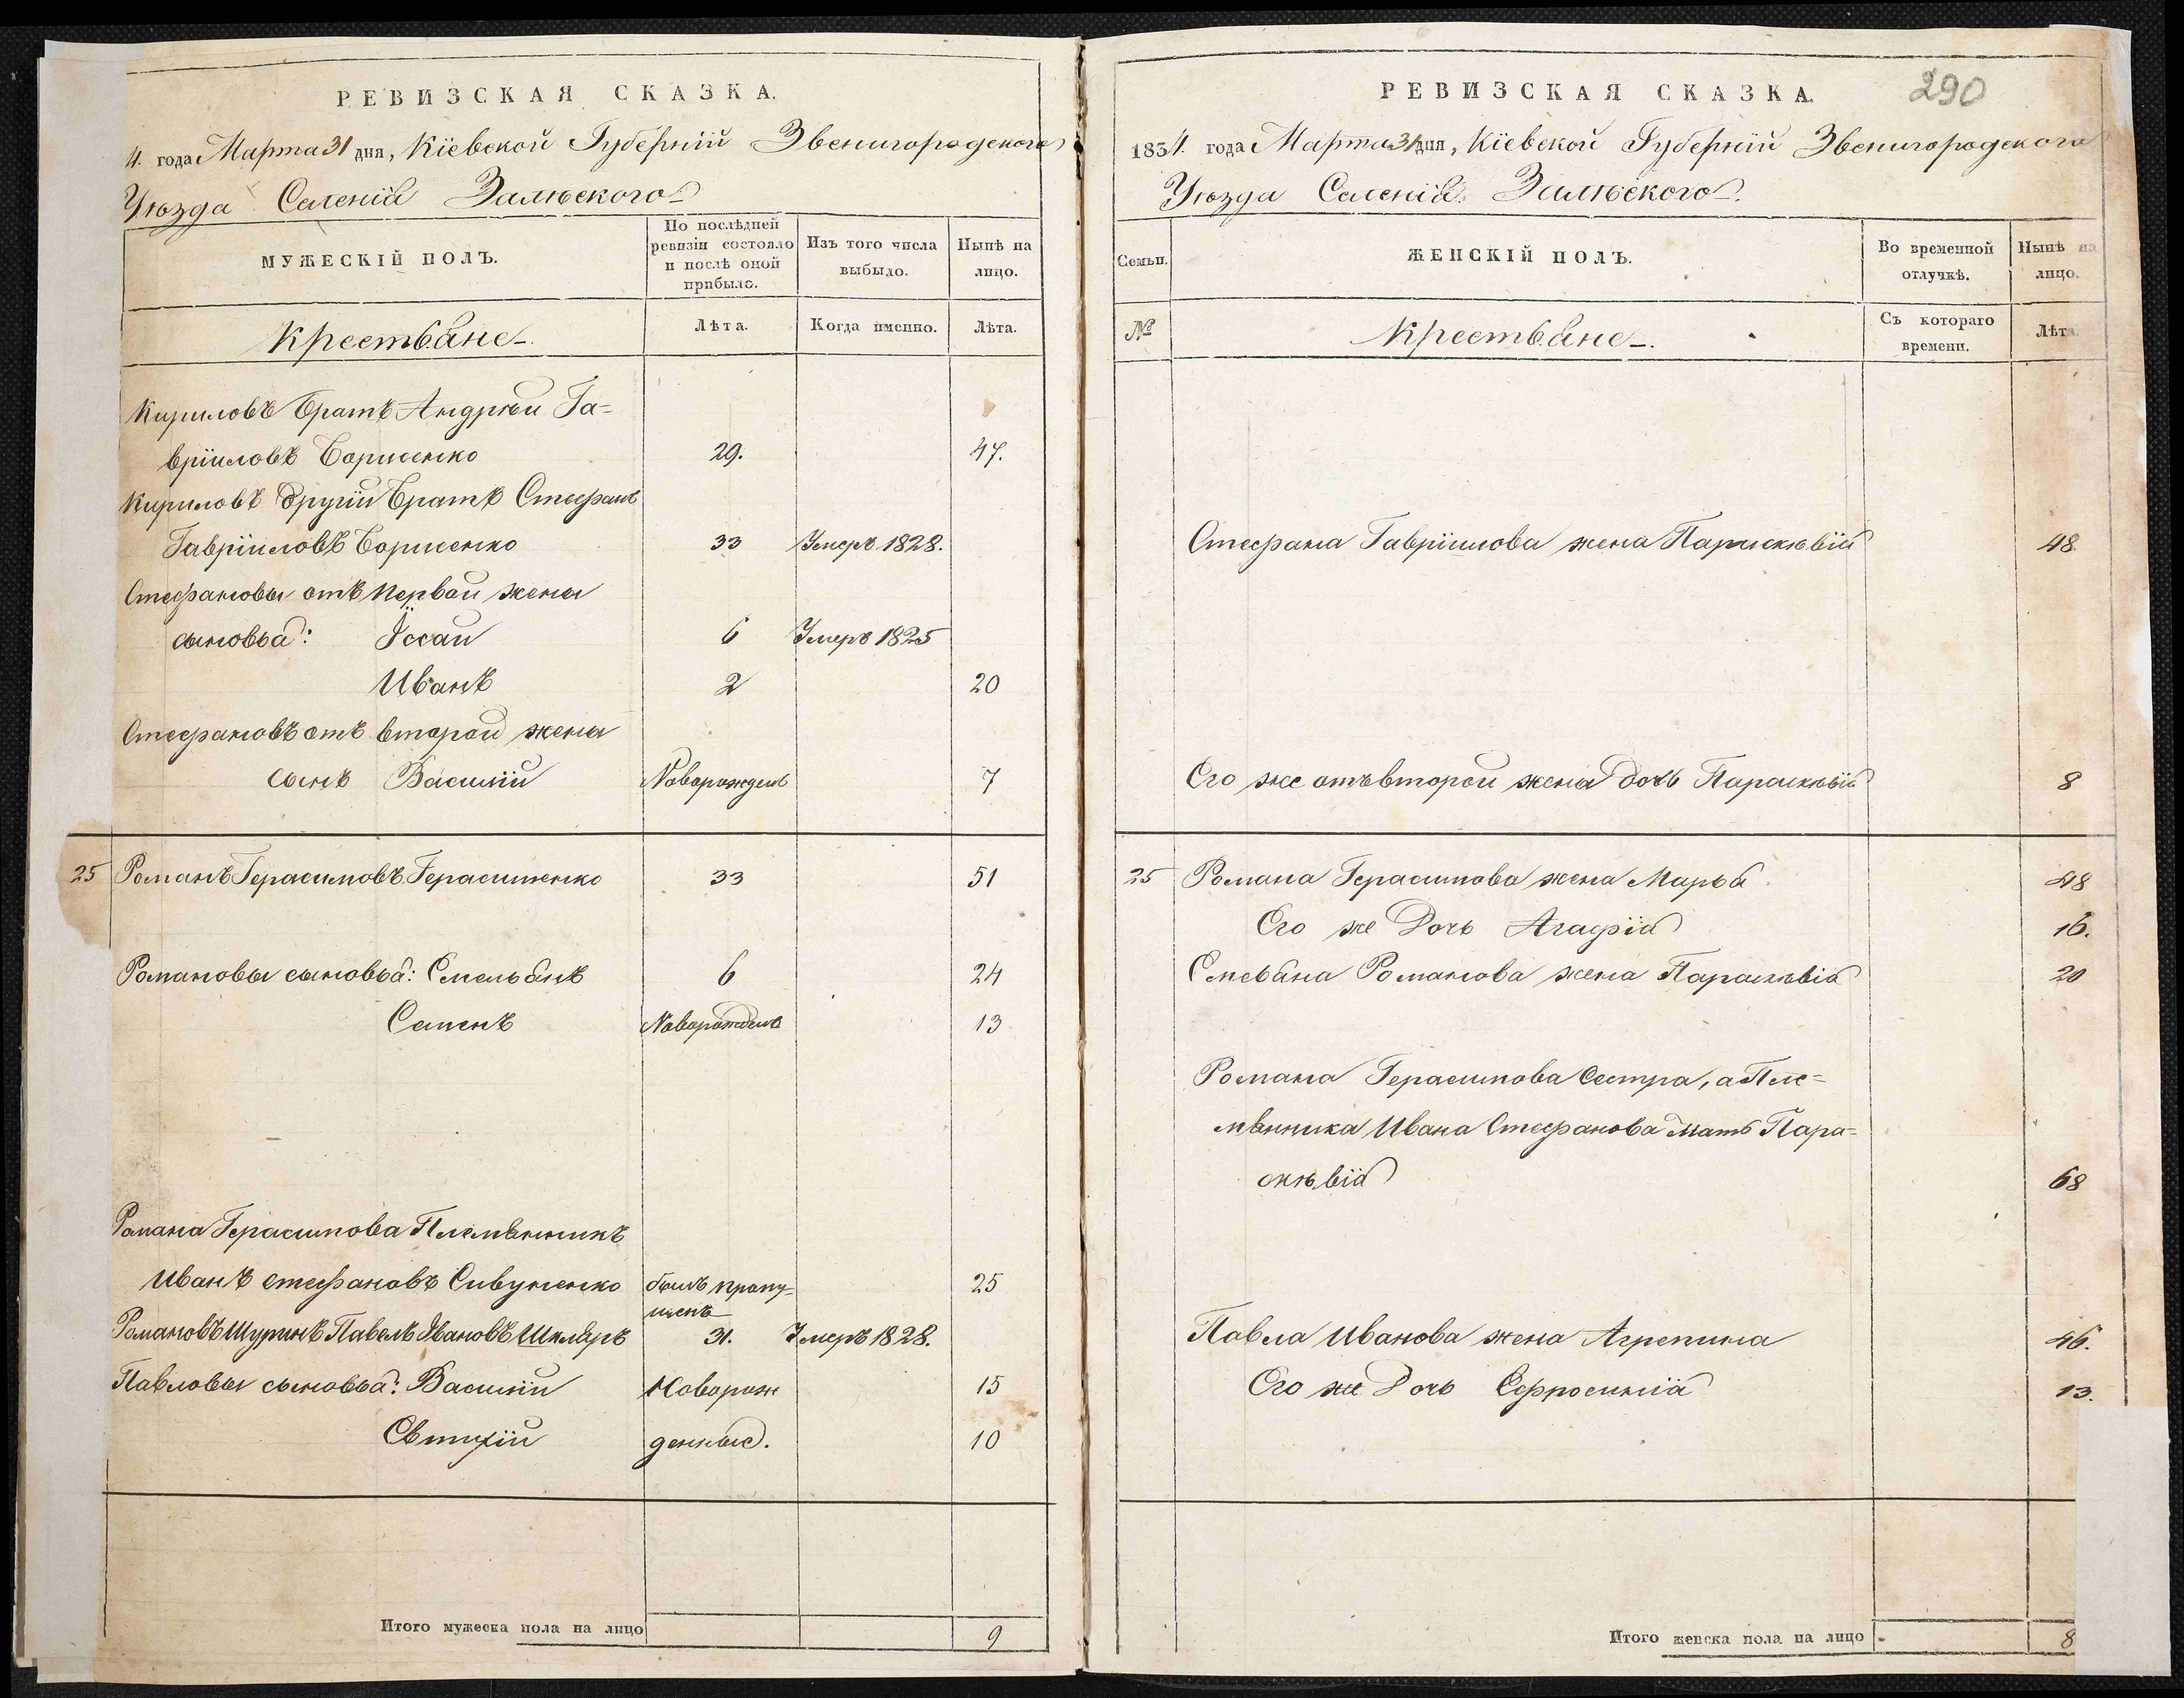 РЕВИЗСКАЯ СКАЗКА.
4. года Марта 31 дня, Кіевской Губерніи Звенигородского
Уѣзда Селенія Залѣского
МУЖЕСКІЙ ПОЛЪ.
По послѣдней ревизіи состояло и послѣ оной прибыло.
Изъ того числа выбыло.
Нынѣ на лицо.
Крестьяне
Лѣта.
Когда именно.
Лѣта.
Кириловъ братъ Андрѣй Га=
вріиловъ Борисенко 29. 47.
Кириловъ другій братъ Стефанъ
Гавріиловъ Борисенко 33 Умеръ 1828.
Стефановы отъ первой жены
сыновья: Іссай 6 Умеръ 1825
Иванъ 2 20
Стефановъ отъ второй жены
сынъ Василій Новорожденъ 7
25 Романъ Герасимовъ Герасименко 33 51
Романовы сыновья: Емельянъ 6 24
Семенъ Новорожденъ 13
Романа Герасимова Племянникъ
Иванъ Стефановъ Сивуненко былъ пропу= 25
щенъ
Романовъ Шуринъ Павелъ Ивановъ Шкляръ 31. Умеръ 1828.
Павловы сыновья: Василій Новорож 15
Евтихій денные. 10
Итого мужеска пола на лицо 9
РЕВИЗСКАЯ СКАЗКА.
290
1834. года Марта 31 дня, Кіевской Губерніи Звенигородского
Уѣзда Селенія Залѣского.
Семьи.
ЖЕНСКІЙ ПОЛЪ.
Во временной отлучкѣ.
Нынѣ на лицо.
№
Крестьяне.
Съ котораго времени.
Лѣта
Стефана Гавріилова жена Параскѣвія 48.
Его же отъ второй жены дочь Параскѣвія 8
25 Романа Герасимова жена Марья 48
Его же Дочь Агафія 16.
Емельяна Романова жена Параскѣвія 20
Романа Герасимова Сестра, а Пле=
мянника Ивана Стефанова мать Пара=
скѣвія 68
Павла Иванова жена Агрепина 46.
Его же Дочь Ефросинія 13.
Итого женска пола на лицо 8